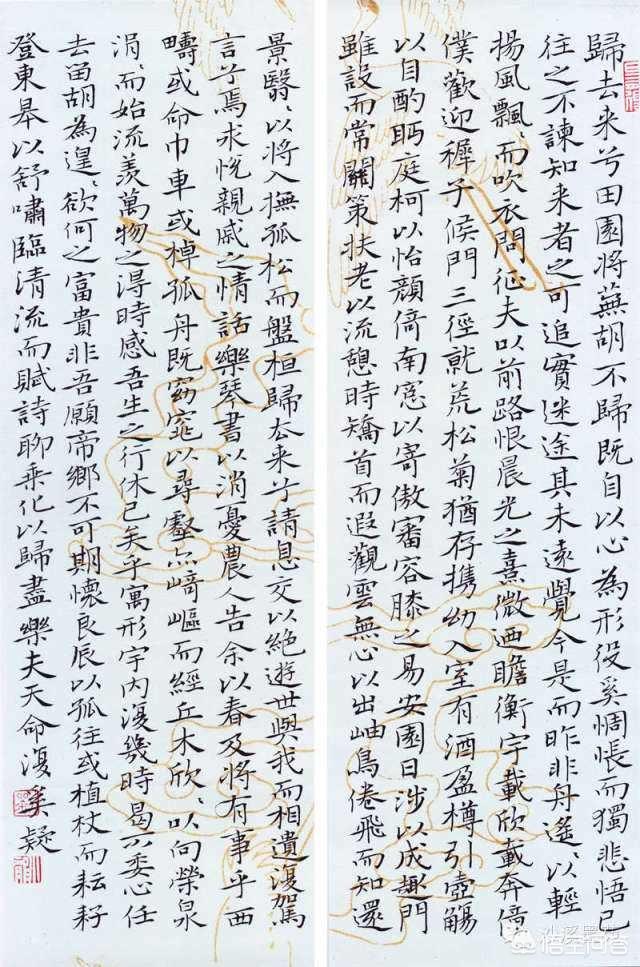 歸去来兮田園將蕪胡不歸既自以心為形役奚惆悵而獨悲悟已
往之不諫知来者之可追實迷途其未遠覺今是而昨非舟遙、以輕
揚風飄、而吹衣問征夫以前路恨晨光之熹微迺瞻衡宇載欣載奔僮
僕歡迎稺子候門三徑就荒松菊猶存携幼入室有酒盈樽引壺觴
以自酌眄庭柯以怡顏倚南窓以寄傲審容膝之易安園日涉以成趣門
雖設而常關策扶老以流憩時矯首而遐觀雲無心以出岫鳥倦飛而知還
景翳、以將入撫孤松而盤桓歸去来兮請息交以絕遊世與我而相遺復駕
言兮焉求悅親戚之情話樂琴書以消憂農人告余以春及將有事乎西
疇或命巾車或棹孤舟既窈窕以尋壑亦崎嶇而經丘木欣、以向榮泉
涓、而始流羨萬物之得時感吾生之行休已矣乎寓形宇內復幾時曷不委心任
去留胡為遑、欲何之富貴非吾願帝鄉不可期懷良辰以孤往或植杖而耘耔
登東皋以舒嘯臨清流而賦詩聊乘化以歸盡樂夫天命復奚疑
悟空问答